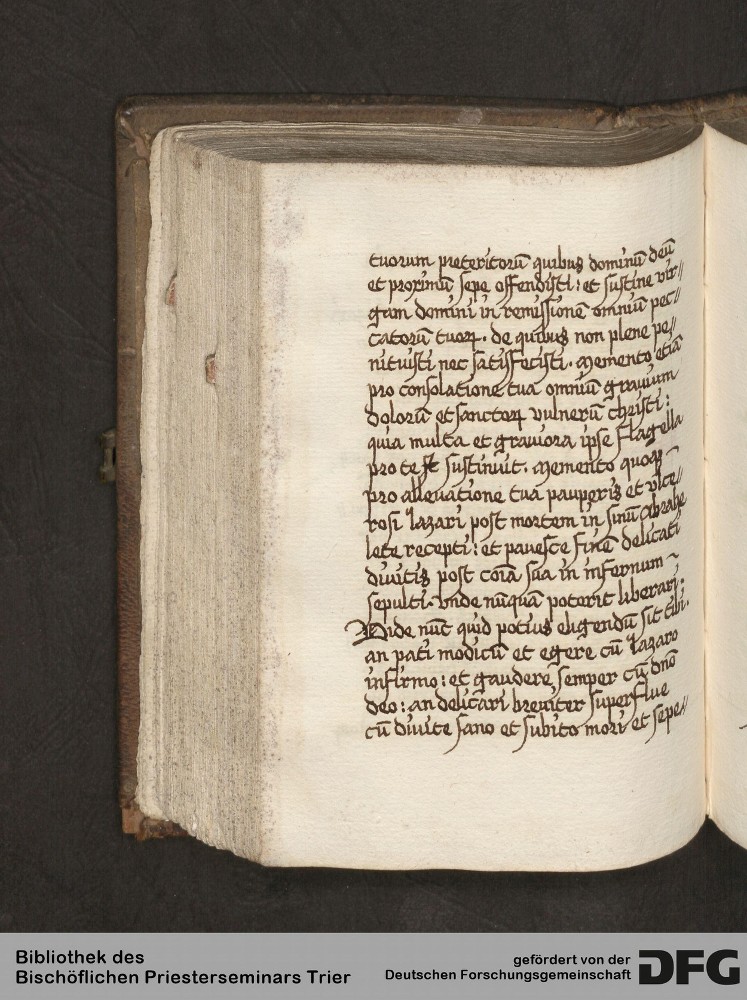 tuorum preteritorū quibus dominū deū
et proximū sepe offendisti: et sustine vir//
gam domini in remissionē omniū pec//
catorū tuoꝝ. de quibus non plene pe//
nituisti nec satisfecisti. Memento etiā
pro consolatione tua omniū grauium
dolorū et sanctoꝝ vulnerū christi:
quia multa et grauiora ipse flagella
pro te sustinuit. Memento quoqꝫ
pro alleuatione tua pauperis et vlce//
rosi lazari post mortem in sinū abrahe
lete recepti: et pauesce finē delicati
diuitis post cenā sua in infernum
sepulti. vnde nūquā poterit liberari:
Vide nūc quid potius eligendū sit tibi.
an pati modicū et egere cū lazaro
infirmo: et gaudere semper cū dn̄o
deo: an delicari breuiter superflue
cū diuite sano et subito mori et sepe//
Bibliothek des
Bischöflichen Priesterseminars Trier
gefördert von der
Deutschen Forschungsgemeinschaft
DFG